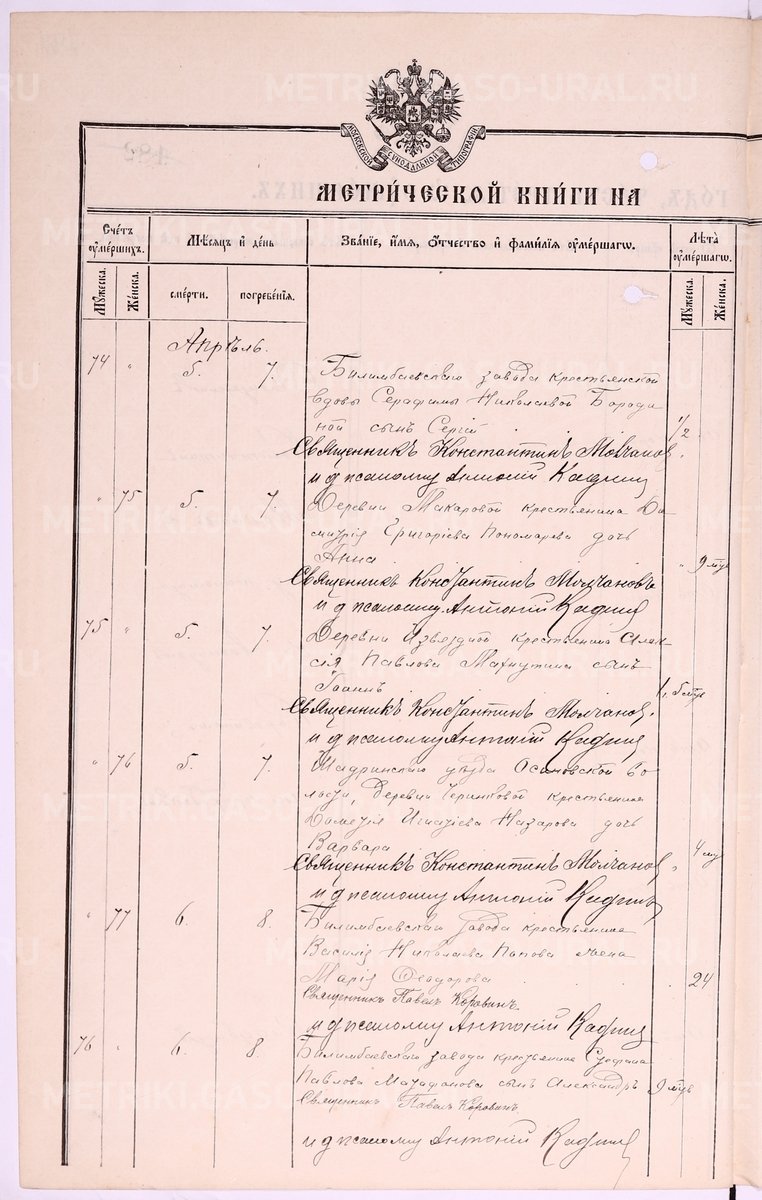 МОСКОВСКОЙ СѴНОДАЛЬНОЙ ТИПОГРАФІИ
МЕТРИ́ЧЕСКОЙ КНИ́ГИ НА
Сче́тъ ᲂу҆ме́ршихъ.
Мѣ́сѧцъ и҆ де́нь
Зва́нїе, и҆́мѧ, ѻ҆́тчество и҆ фамилїѧ ᲂу҆ме́ршагѡ.
Лѣ́та ᲂу҆ме́ршагѡ.
Мꙋ́жеска.
Же́нска.
сме́рти.
погребе́нїѧ.
Мꙋ́жеска.
Же́нска.
Апрѣль.
74 " 5. 7. Билимбаевскаго завода крестьянской
вдовы Серафимы Николаевой Бороди
ной сынъ Сергій 1/2
Священникъ Константинъ Молчановъ
и д псаломщ Антоній Кадпиц
" 75 5. 7. Деревни Макаровой крестьянина Ди
митрія Григоріева Пономарева дочь
Анна " 9 мц
Священникъ Константинъ Молчановъ
и д псаломщ. Антоній
75 " 5. 7. Деревни Извездной крестьянина Алек
сія Павлова Махнутина сынъ
Іоаннъ
Священникъ Константинъ Молчановъ.
и д псаломщ Антоній
" 76 5. 7. Шадринскаго уѣзда Осиновской во
лости, Деревни крестьянина
Игнатіева Назарова дочь
Варвара " 4
Священникъ Константинъ Молчановъ
и д псаломщ Антоній
" 77 6. 8. Билимбаевскаго Завода крестьянина
Василія Николаева Попова жена
Марія Ѳеодорова 24
Священникъ Павелъ Коровинъ
и д псаломщ Антоній
76 " 6. 8. Билимбаевскаго завода крестьянина Стефана
Павлова сынъ Александръ 9
Священникъ Павелъ Коровинъ
и д псаломщ Антоній
METRIKI.GASO-URAL.RU